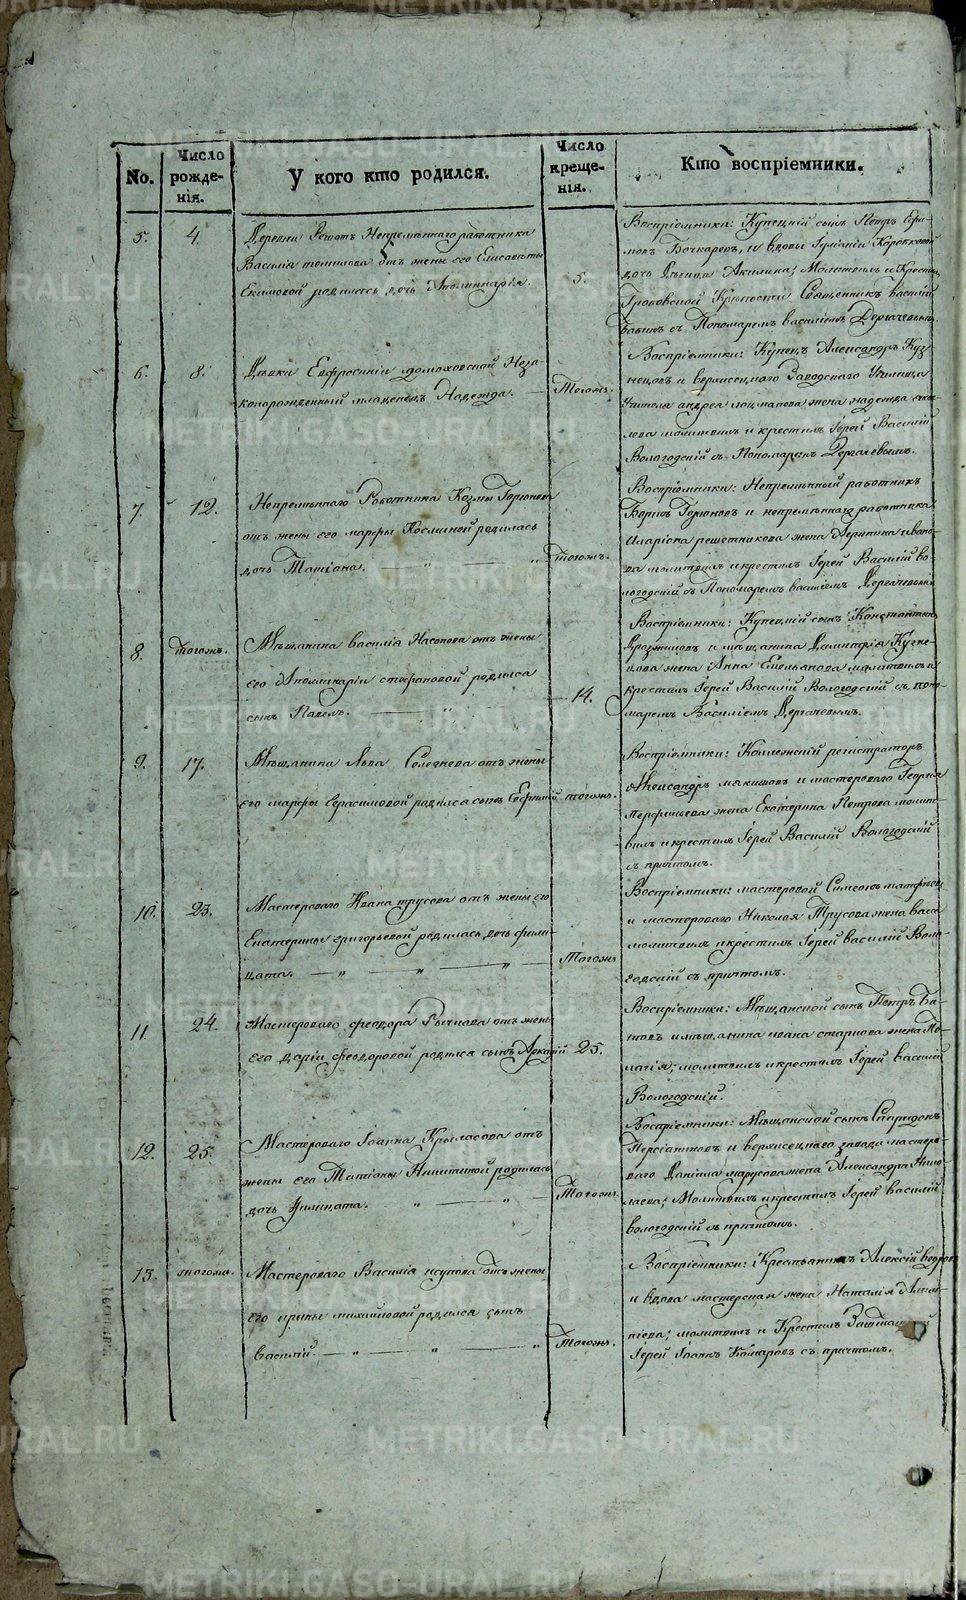 METRIKI.GASO-URAL.RU
No.
Число рожденія.
У кого кто родился.
Число крещенія.
Кто воспріемники.
5.
4.
Деревни Решотъ Непремѣннаго работника
Василія Томилова отъ жены его Елисаветы
Екимовой родилась дочь Аполинарія.
5.
Воспріемники: Купецкій сынъ Петръ Ефи-
мовъ Бочкаревъ, и вдовы
дочь дѣвица Акилина; Молитвилъ и крестилъ
Крѣпости Священникъ Василій
съ Пономаремъ Василіемъ Дергачевымъ.
6.
8.
Дѣвки Евфросиніи Домоховской Неза-
конорожденный младенецъ Надежда.
Тогожъ.
Воспріемники: Купецъ Александръ Куз-
нецовъ и верхисецкаго Заводскаго Училища
Учителя Андрея жена Надежда
молитвилъ и крестилъ Іерей Василій
Вологодскій съ Пономаремъ Дергачевымъ.
7.
12.
Непремѣннаго Работника Козмы Горюнова
отъ жены его Марфы Косминой родилась
дочь Татіана.
тогожъ.
Воспріемники: Непремѣнный работникъ
Борисъ Горюновъ и непремѣннаго работника
Иларіона Решетникова жена Ивано-
ва молитвилъ и крестилъ Іерей Василій Во-
логодскій съ Пономаремъ Василіемъ Дергачевымъ
8.
тогожъ.
Мѣщанина Василія Насонова отъ жены
его Аполинаріи Стефановой родился
сынъ Павелъ.
14.
Воспріемники: Купецкій сынъ Константинъ
и мѣщанина Димитрія Кузне-
цова жена Анна Емельянова молитвилъ и
крестилъ Іерей Василій Вологодскій съ поно-
маремъ Василіемъ Дергачевымъ.
9.
17.
Мѣщанина Льва Селезнева отъ жены
его Марфы Герасимовой родился сынъ Евфимій
тогожъ.
Воспріемники: Коллежскій регистраторъ
Александръ Мякишовъ и мастероваго Георгія
Перфильева жена Екатерина Петрова молит-
вилъ и крестилъ Іерей Василій Вологодскій
съ причтомъ.
10.
23.
Мастероваго Ивана Трусова отъ жены его
Екатерины Григорьевой родилась дочь Фили-
цата.
Тогожъ
Воспріемники: мастеровой Симеонъ
и мастероваго Николая Трусова жена
молитвилъ и крестилъ Іерей Василій Воло-
годскій съ причтомъ.
11
24.
Мастероваго Феодора Рычкова отъ жены
его Даріи Феодоровой родился сынъ Аркадій
25.
Воспріемники: Мѣщанской сынъ Петръ Ба-
и мѣщанина Ивана Старкова жена Пе-
лагія; молитвилъ и крестилъ Іерей Василій
Вологодскій.
12.
25.
Мастероваго Іоанна Крыласова отъ
жены его Татіаны Никитиной родилась
дочь Филицата.
Тогожъ.
Воспріемники: Мѣщанской сынъ Спиридонъ
и верхисецкаго завода мастеро-
ваго Даніила жена Александра Нико-
лаева; Молитвилъ и крестилъ Іерей Василій
Вологодскій съ причтомъ.
13.
тогожъ.
Мастероваго Василія Исупова отъ жены
его Ирины Михайловой родился сынъ
Василій.
Тогожъ.
Воспріемники: Крестьянинъ Алексій
и вдова мастерская жена Наталія
молитвилъ и Крестилъ
Іерей Іоаннъ Комаровъ съ причтомъ.